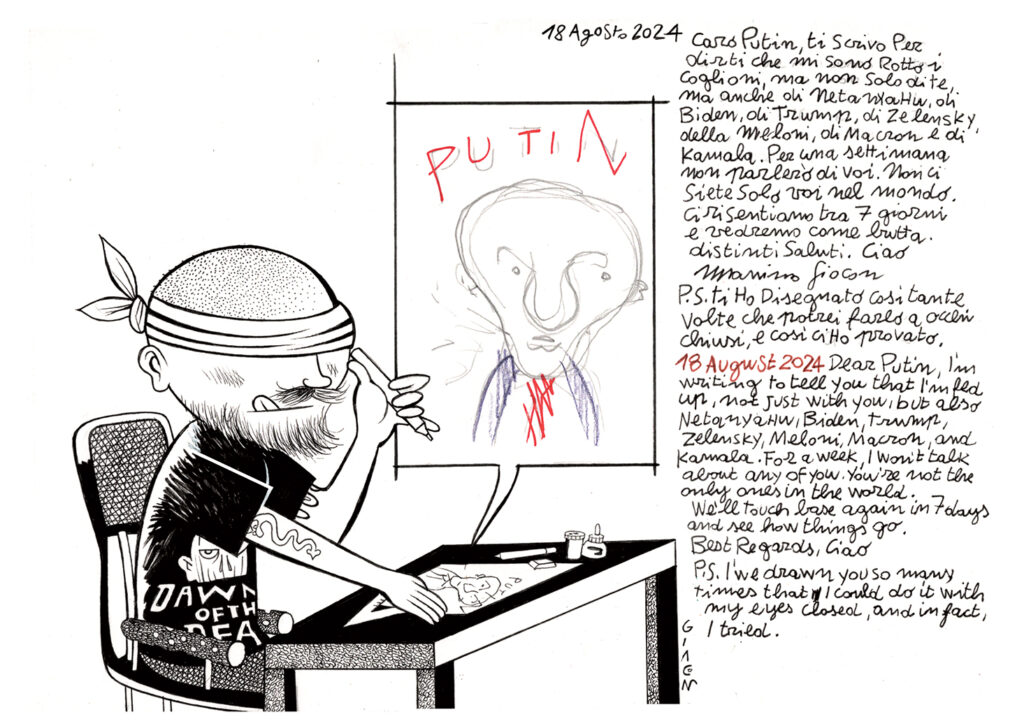 18 Agosto 2024
Caro Putin, ti scrivo Per
dirti che mi sono Rotto i
Coglioni, ma non solo di te,
ma anche di Netanyahu, di
Biden, di Trump, di Zelensky,
della Meloni, di Macron e di
Kamala. Per una settimana
non parlerò di voi. Non ci
siete solo voi nel mondo.
Ci risentiamo tra 7 giorni
e vedremo come butta.
distinti saluti. Ciao
Massimo Giacon
P.S. ti Ho Disegnato così tante
volte che potrei farlo a occhi
chiusi, e così ci Ho provato.
18 August 2024 Dear Putin, I'm
writing to tell you that I'm fed
up, not just with you, but also
Netanyahu, Biden, Trump,
Zelensky, Meloni, Macron, and
Kamala. For a week, I won't talk
about any of you. You're not the
only ones in the world.
We'll touch base again in 7 days
and see how things go.
Best Regards, Ciao
P.S. I've drawn you so many
times that I could do it with
my eyes closed, and in fact,
I tried.
PUTIN
DAWN
OF THE
DEA
GIACON